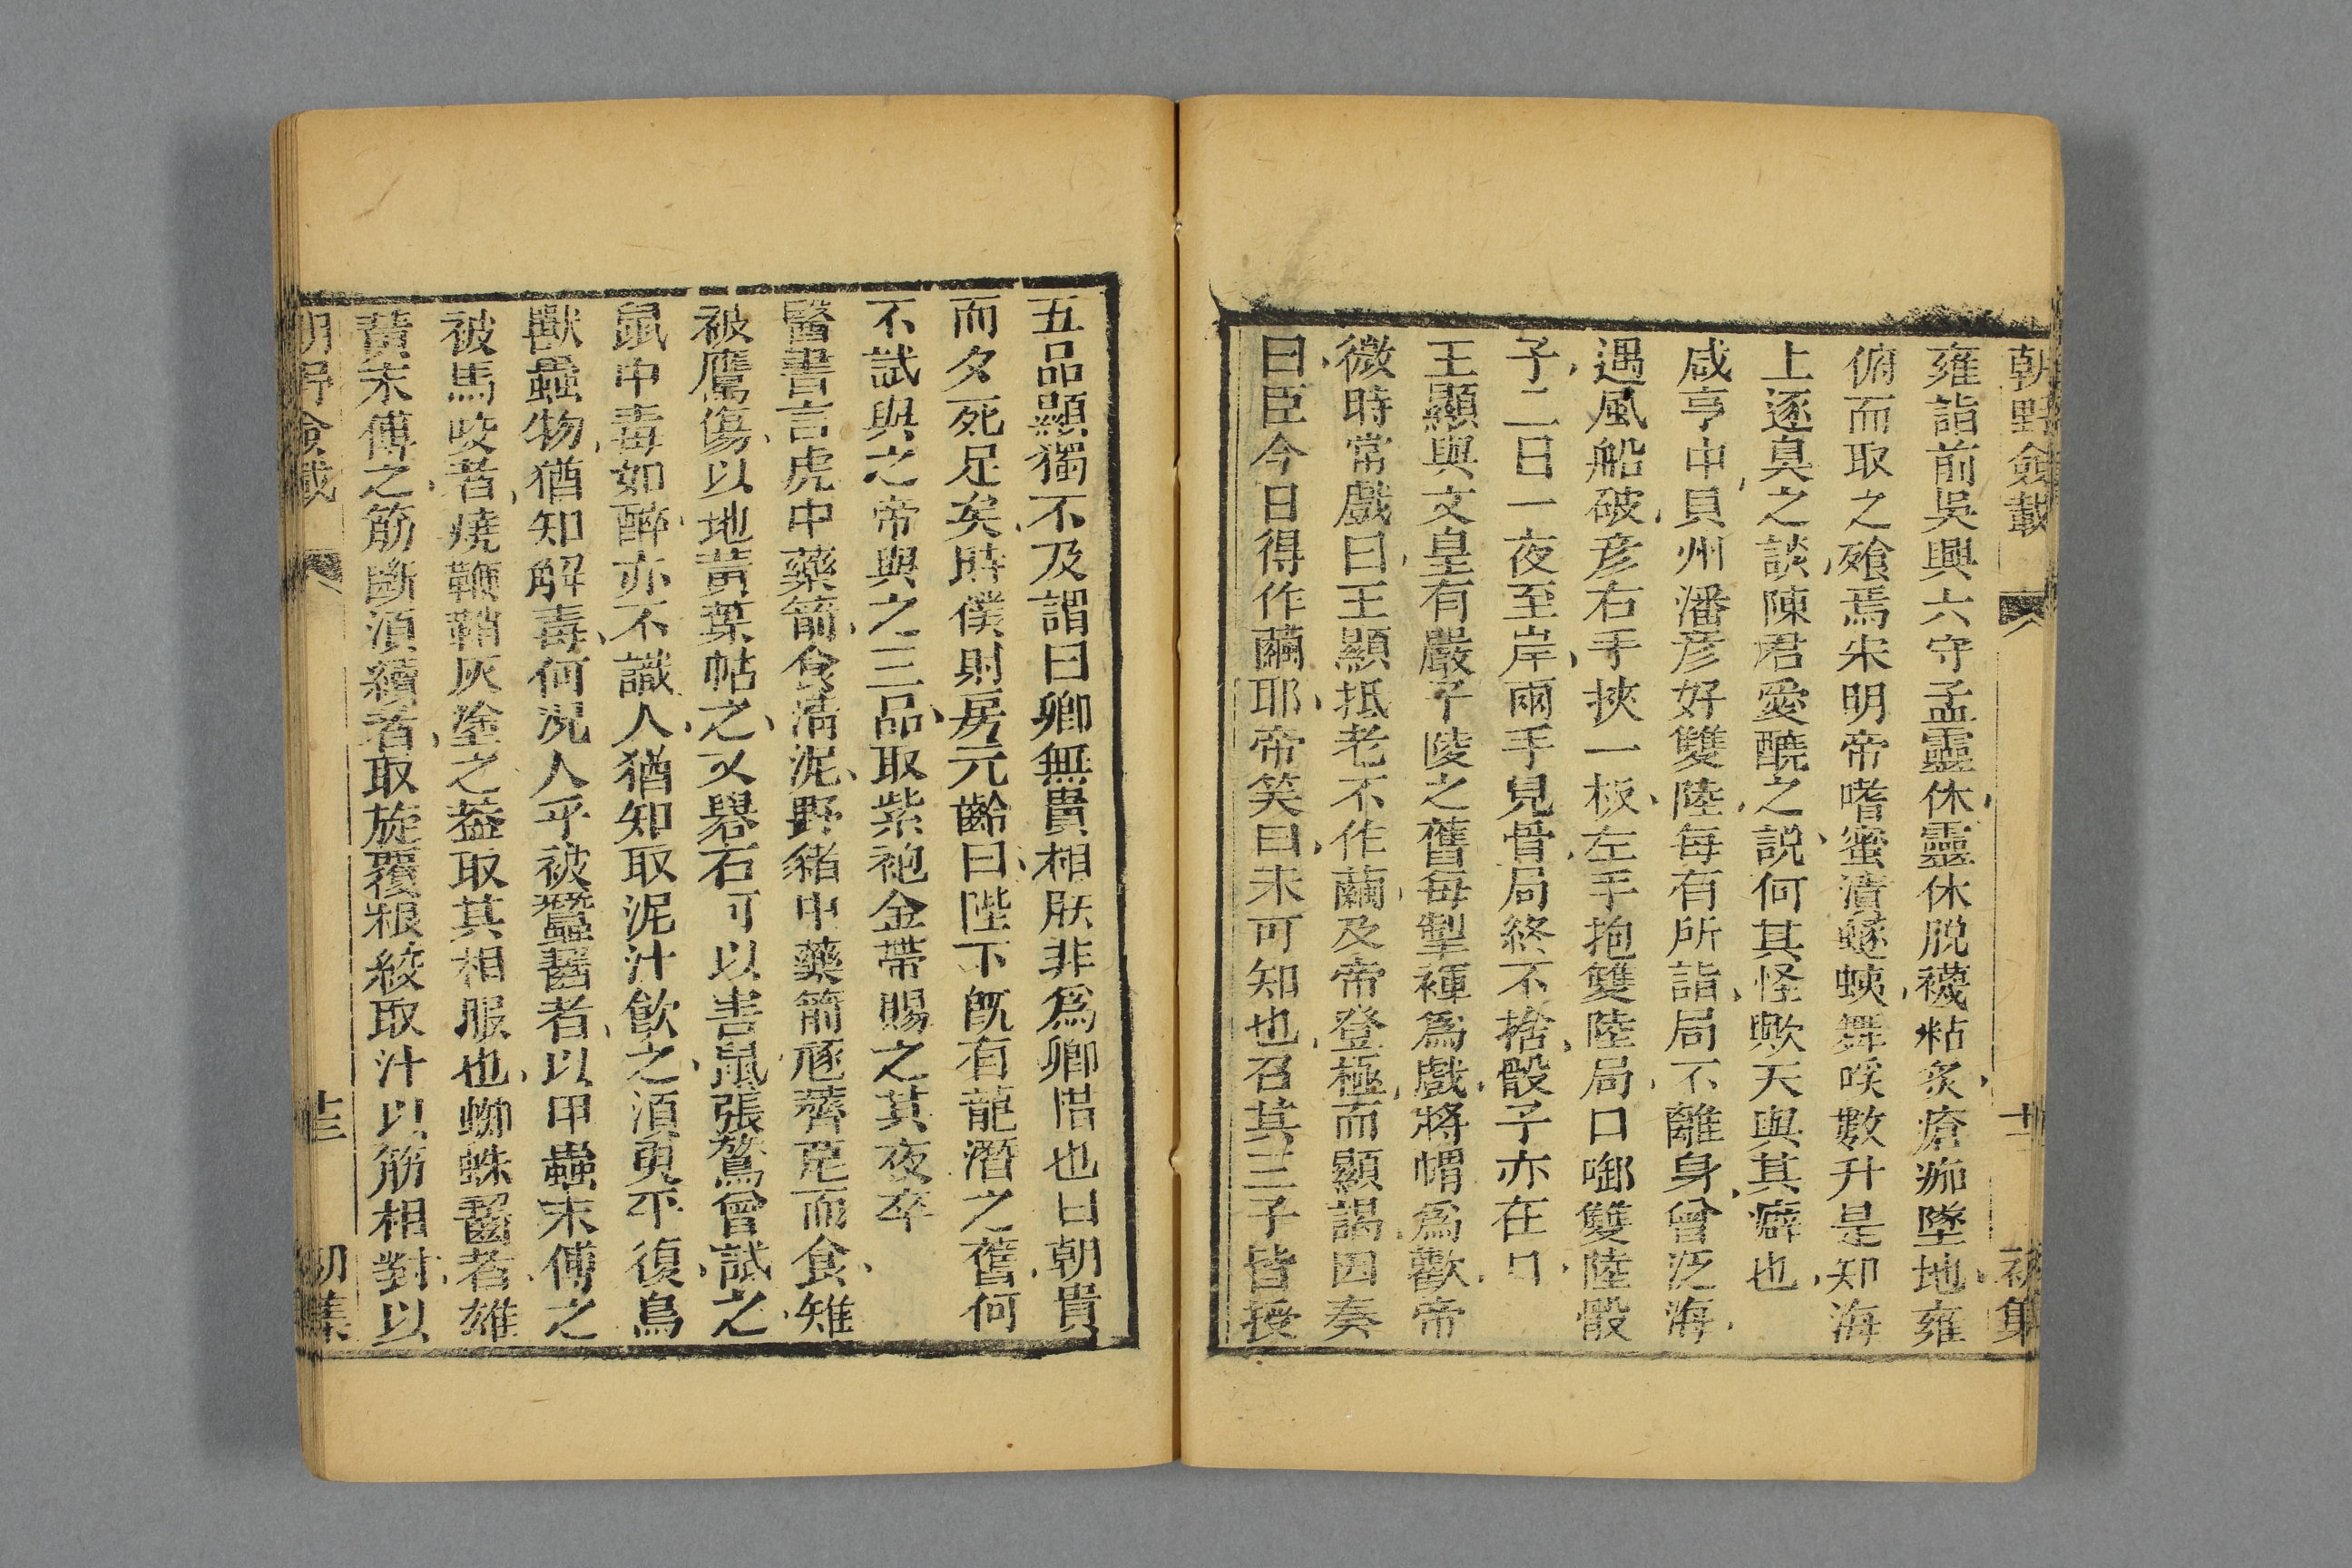 朝野僉載 十二 初集
雍詣前吳興六守孟靈休靈休脱襪粘炙瘡痂墜地雍
俯而取之飱焉宋明帝嗜蜜漬蠔蛦舞啖數升是知海
上逐臭之談陳君愛醜之説何其怪歟天與其癖也
咸亨中貝州潘彦好雙陸每有所詣局不離身曾泛海
遇風船破彦右手挾一板左手抱雙陸局口啣雙陸骰
子二日一夜至岸兩手見骨局終不捨骰子亦在口
王顯與文皇有嚴子陵之舊每掣褌爲戲將帽爲歡帝
微時常戲曰王顯抵老不作繭及帝登極而顯謁因奏
曰臣今日得作繭耶帝笑曰未可知也召其三子皆授
五品顯獨不及謂曰卿無貴相朕非爲卿惜也曰朝貴
而夕死足矣時僕射房元齡曰陛下旣有龍潛之舊何
不試與之帝與之三品取紫袍金帶賜之其夜卒
醫書言虎中藥箭食清泥野豬中藥箭豗薺苨而食雉
被鷹傷以地黃葉帖之又礜石可以害鼠張鷟曾試之
鼠中毒如醉亦不識人猶知取泥汁飲之須臾平復鳥
獸蟲物猶知解毒何況人乎被蠶齧者以甲蟲末傅之
被馬咬者燒鞭鞘灰塗之葢取其相服也蜘蛛齧者雄
黃末傅之筋斷須續者取旋覆根絞取汁以筋相對以
朝野僉載 十三 初集